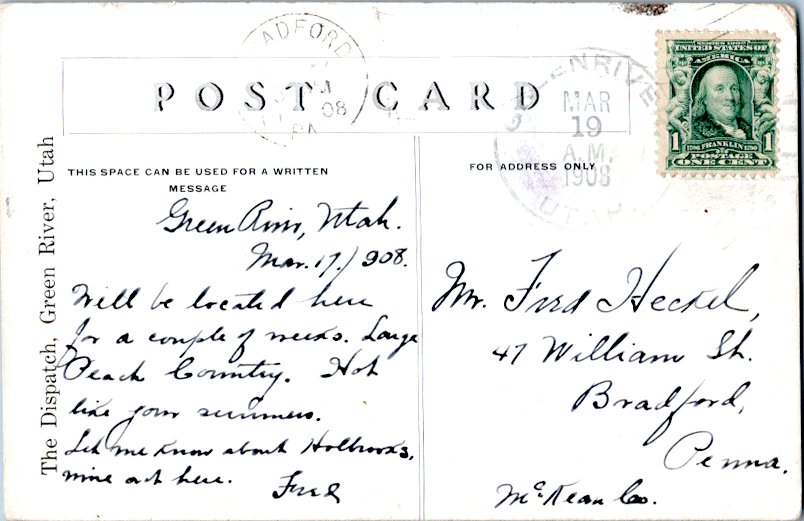 BRADFORD
PA.
08
POST CARD
GREENRIVER
MAR
19
A.M.
1908
UTAH
SERIES 1902
UNITED STATES OF
AMERICA
1 1
1706 FRANKLIN 1790
POSTAGE
ONE CENT
The Dispatch, Green River, Utah
THIS SPACE CAN BE USED FOR A WRITTEN
MESSAGE
Green River, Utah.
Mar. 17/908.
Will be located here
for a couple of weeks. Large
Peach Country. Hot
like your summers.
Let me know about Holbrooks,
mine out here.
Fred
FOR ADDRESS ONLY
Mr. Fred Heckel,
47 William St.
Bradford,
Penna.
McKean Co.